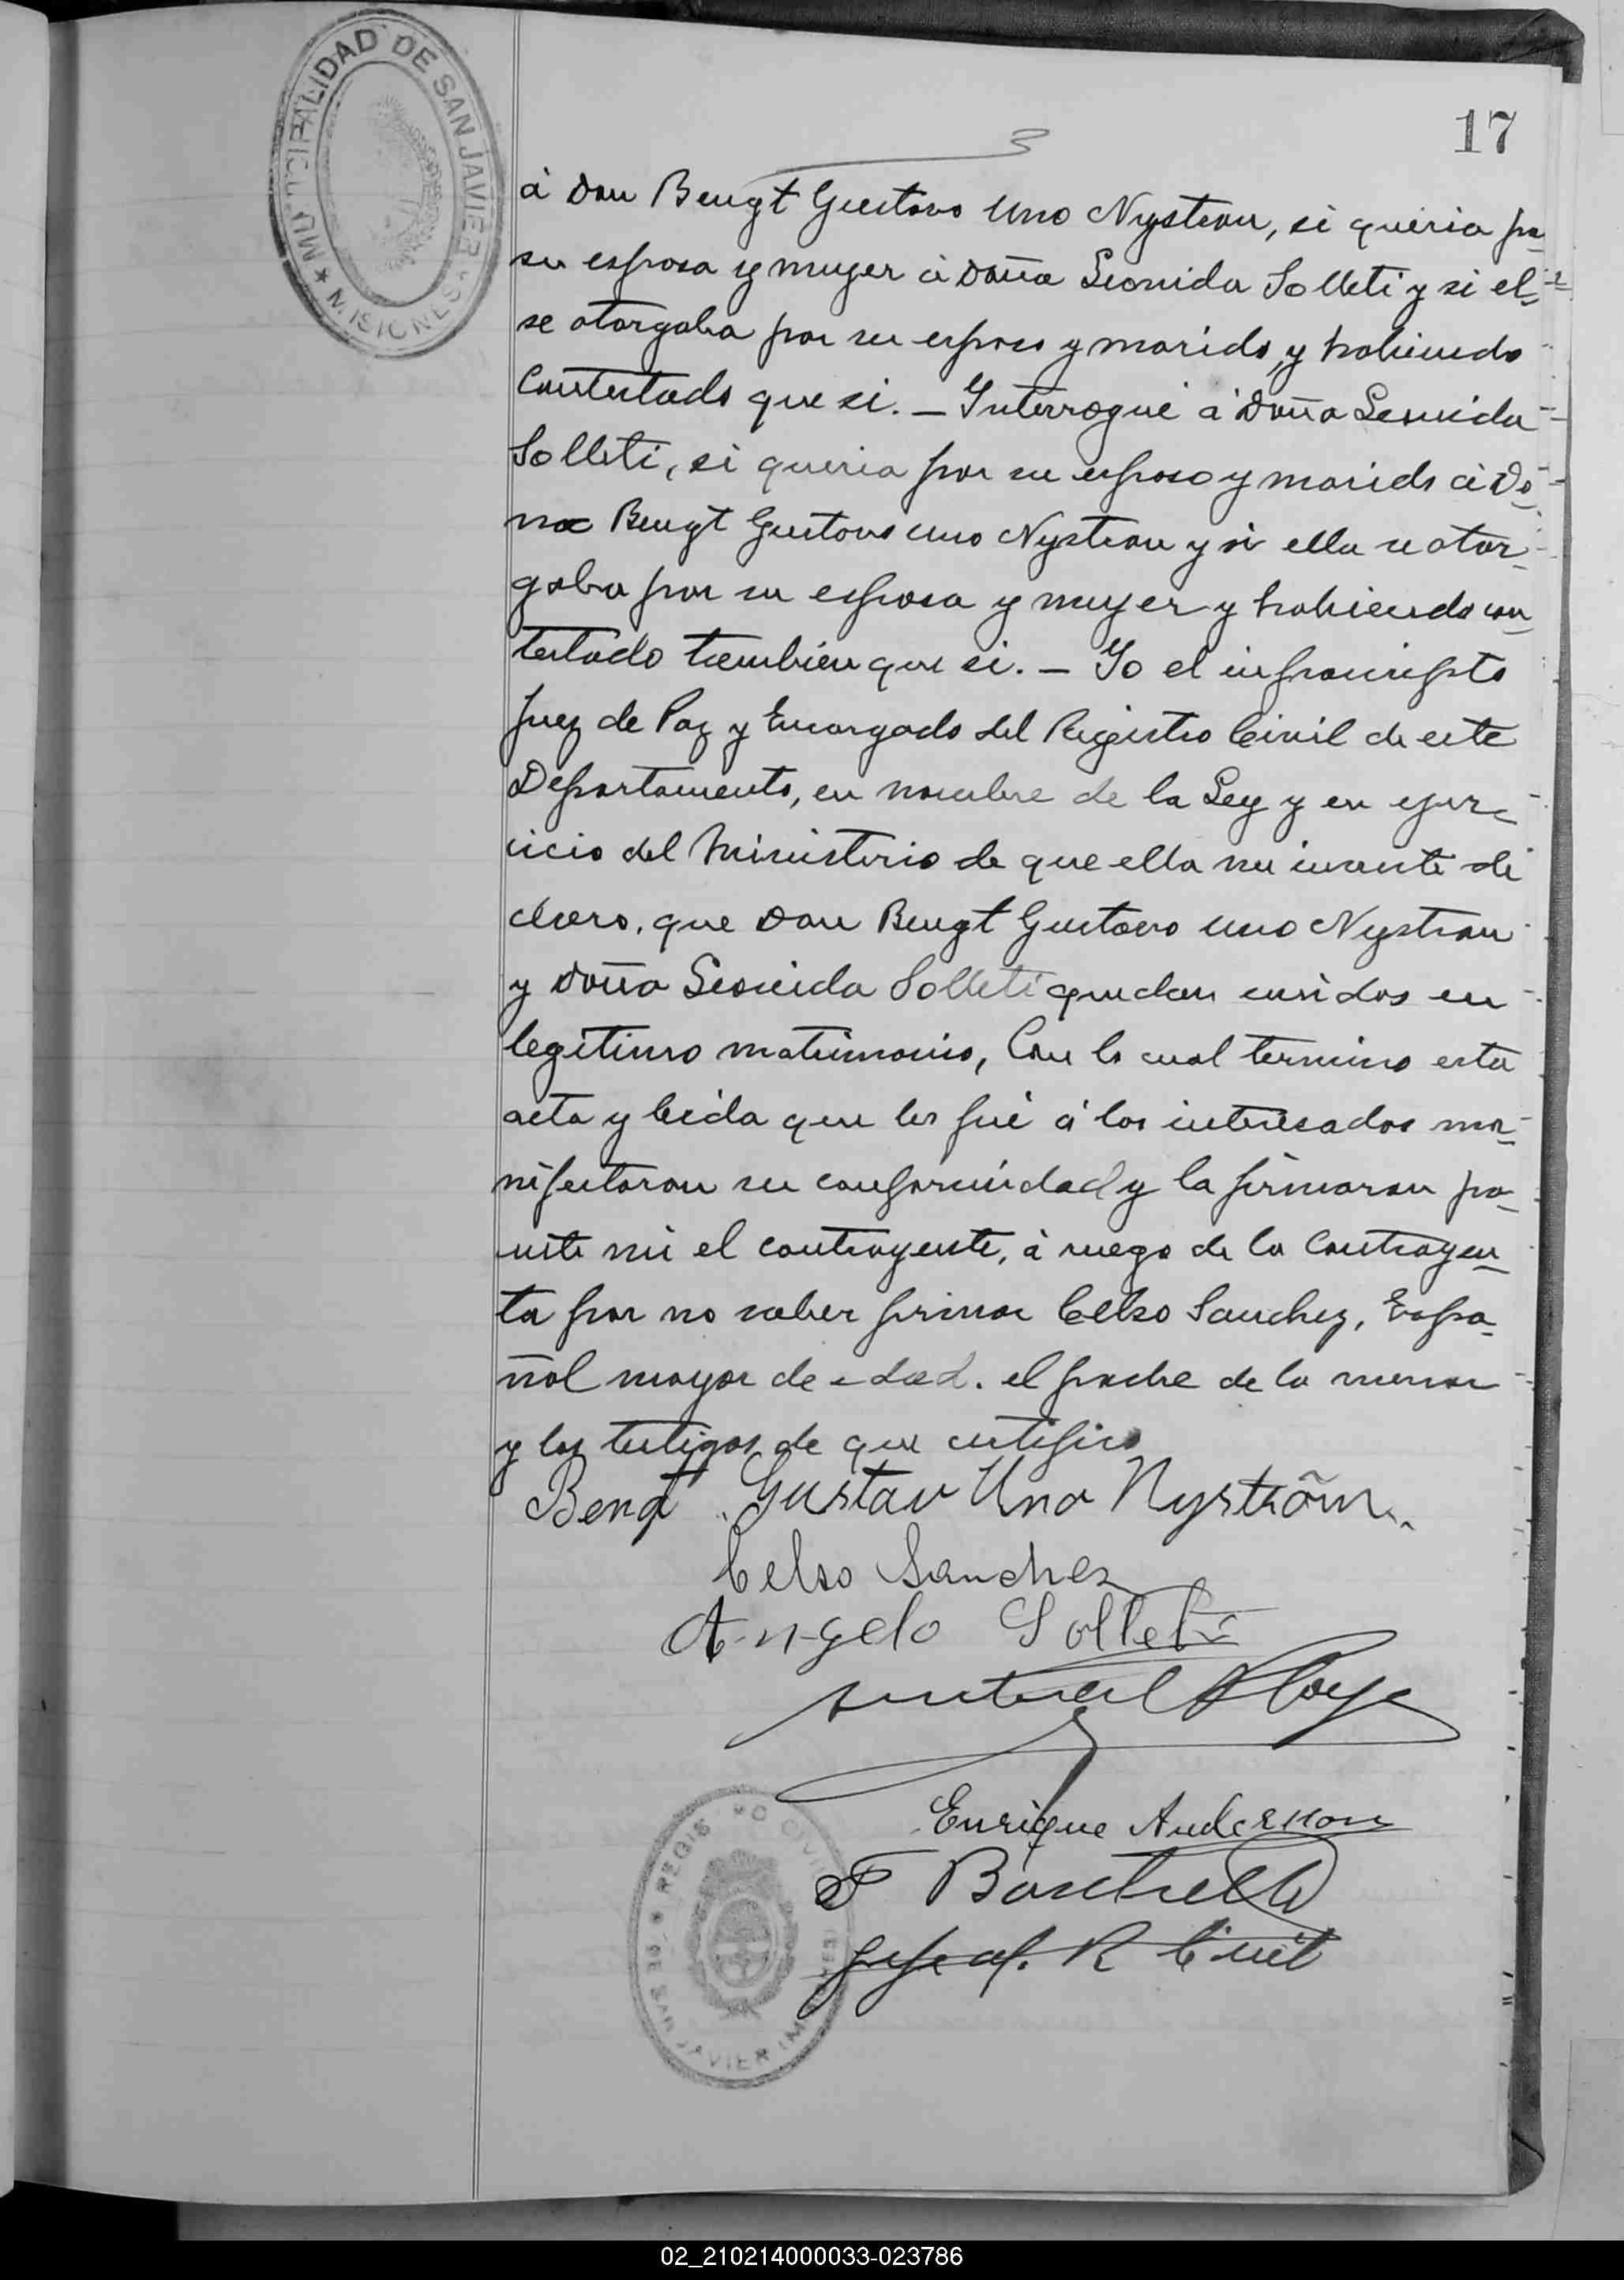 MUNICIPALIDAD DE SAN JAVIER
★ MISIONES ★
17
à Don Bengt Gustavo Uno Nystron, si queria po
su esposa y muyer à Doña Leonida Solleti y si el
se otorgaba por su esposo y marido, y habiendo
Contestado que si. — Interrogué à Doña Leonida
Solleti, si queria por su esposo y marido à Do
na Bengt Gustavo Uno Nystron y si ella se otor-
gaba por su esposa y muyer y habiendo con-
testado tambien que si. — Yo el infrascripto
Juez de Paz y Encargado del Registro Civil de este
Departamento, en nombre de la Ley y en ejer-
cicio del Ministerio de que ella me inviste de
claro, que Don Bengt Gustavo Uno Nystron
y Doña Leonida Solleti quedan unidos en
legitimo matrimonio, Con lo cual termino esta
acta y leida que les fué à los interesados ma-
nifestaron su conformidad y la firmaron po-
nte mi el contrayente, à ruego de la Contrayen-
ta por no saber firmar Celso Sanchez, Espa-
ñol mayor de edad. el padre de la menor
y los testigos de que certifico
Bengt Gustav Uno Nyström
Celso Sanchez
Angelo Solleti
Enrique Anderson
REGISTRO CIVIL
DE SAN JAVIER (MISIONES)
Jefe of. R Civil
02_210214000033-023786